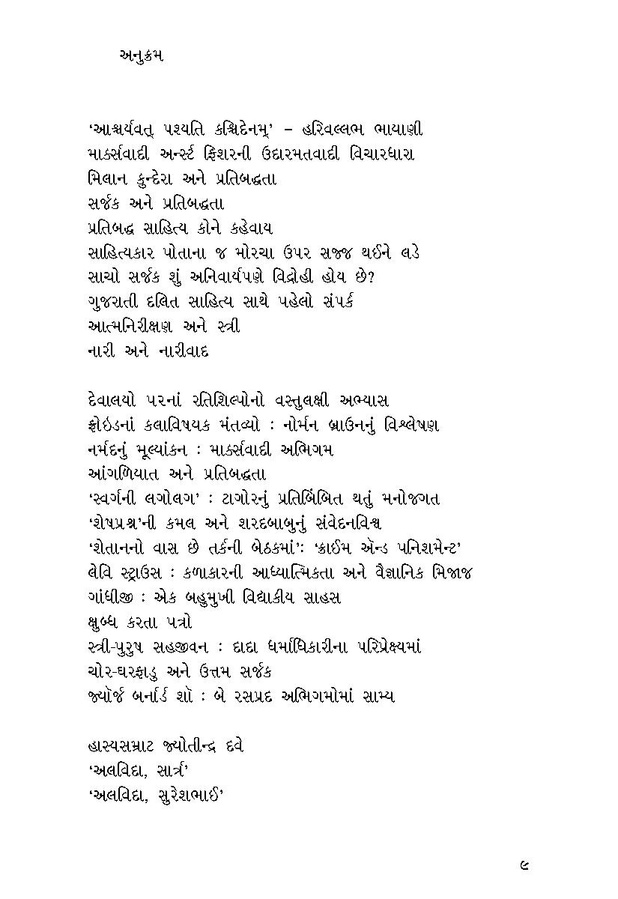 અનુક્રમ
‘આશ્ચર્યવત્ પશ્યતિ કશ્ચિદેનમ્’ – હરિવલ્લભ ભાયાણી
માર્ક્સવાદી અર્ન્સ્ટ ફિશરની ઉદારમતવાદી વિચારધારા
મિલાન કુન્દેરા અને પ્રતિબદ્ધતા
સર્જક અને પ્રતિબદ્ધતા
પ્રતિબદ્ધ સાહિત્ય કોને કહેવાય
સાહિત્યકાર પોતાના જ મોરચા ઉપર સજ્જ થઈને લડે
સાચો સર્જક શું અનિવાર્યપણે વિદ્રોહી હોય છે?
ગુજરાતી દલિત સાહિત્ય સાથે પહેલો સંપર્ક
આત્મનિરીક્ષણ અને સ્ત્રી
નારી અને નારીવાદ
દેવાલયો પરનાં રતિશિલ્પોનો વસ્તુલક્ષી અભ્યાસ
ફ્રોઇડનાં કલાવિષયક મંતવ્યો : નોર્મન બ્રાઉનનું વિશ્લેષણ
નર્મદનું મૂલ્યાંકન : માર્ક્સવાદી અભિગમ
આંગળિયાત અને પ્રતિબદ્ધતા
‘સ્વર્ગની લગોલગ’ : ટાગોરનું પ્રતિબિંબિત થતું મનોજગત
‘શેષપ્રશ્ન’ની કમલ અને શરદબાબુનું સંવેદનવિશ્વ
‘શેતાનનો વાસ છે તર્કની બેઠકમાં’ઃ ‘ક્રાઈમ ઍન્ડ પનિશમેન્ટ’
લેવિ સ્ટ્રાઉસ : કળાકારની આધ્યાત્મિકતા અને વૈજ્ઞાનિક મિજાજ
ગાંધીજી : એક બહુમુખી વિદ્યાકીય સાહસ
ક્ષુબ્ધ કરતા પત્રો
સ્ત્રી-પુરુષ સહજીવન : દાદા ધર્માધિકારીના પરિપ્રેક્ષ્યમાં
ચોર-ઘરફાડુ અને ઉત્તમ સર્જક
જ્યૉર્જ બર્નાર્ડ શૉ : બે રસપ્રદ અભિગમોમાં સામ્ય
હાસ્યસમ્રાટ જ્યોતીન્દ્ર દવે
‘અલવિદા, સાર્ત્ર’
‘અલવિદા, સુરેશભાઈ’
૯